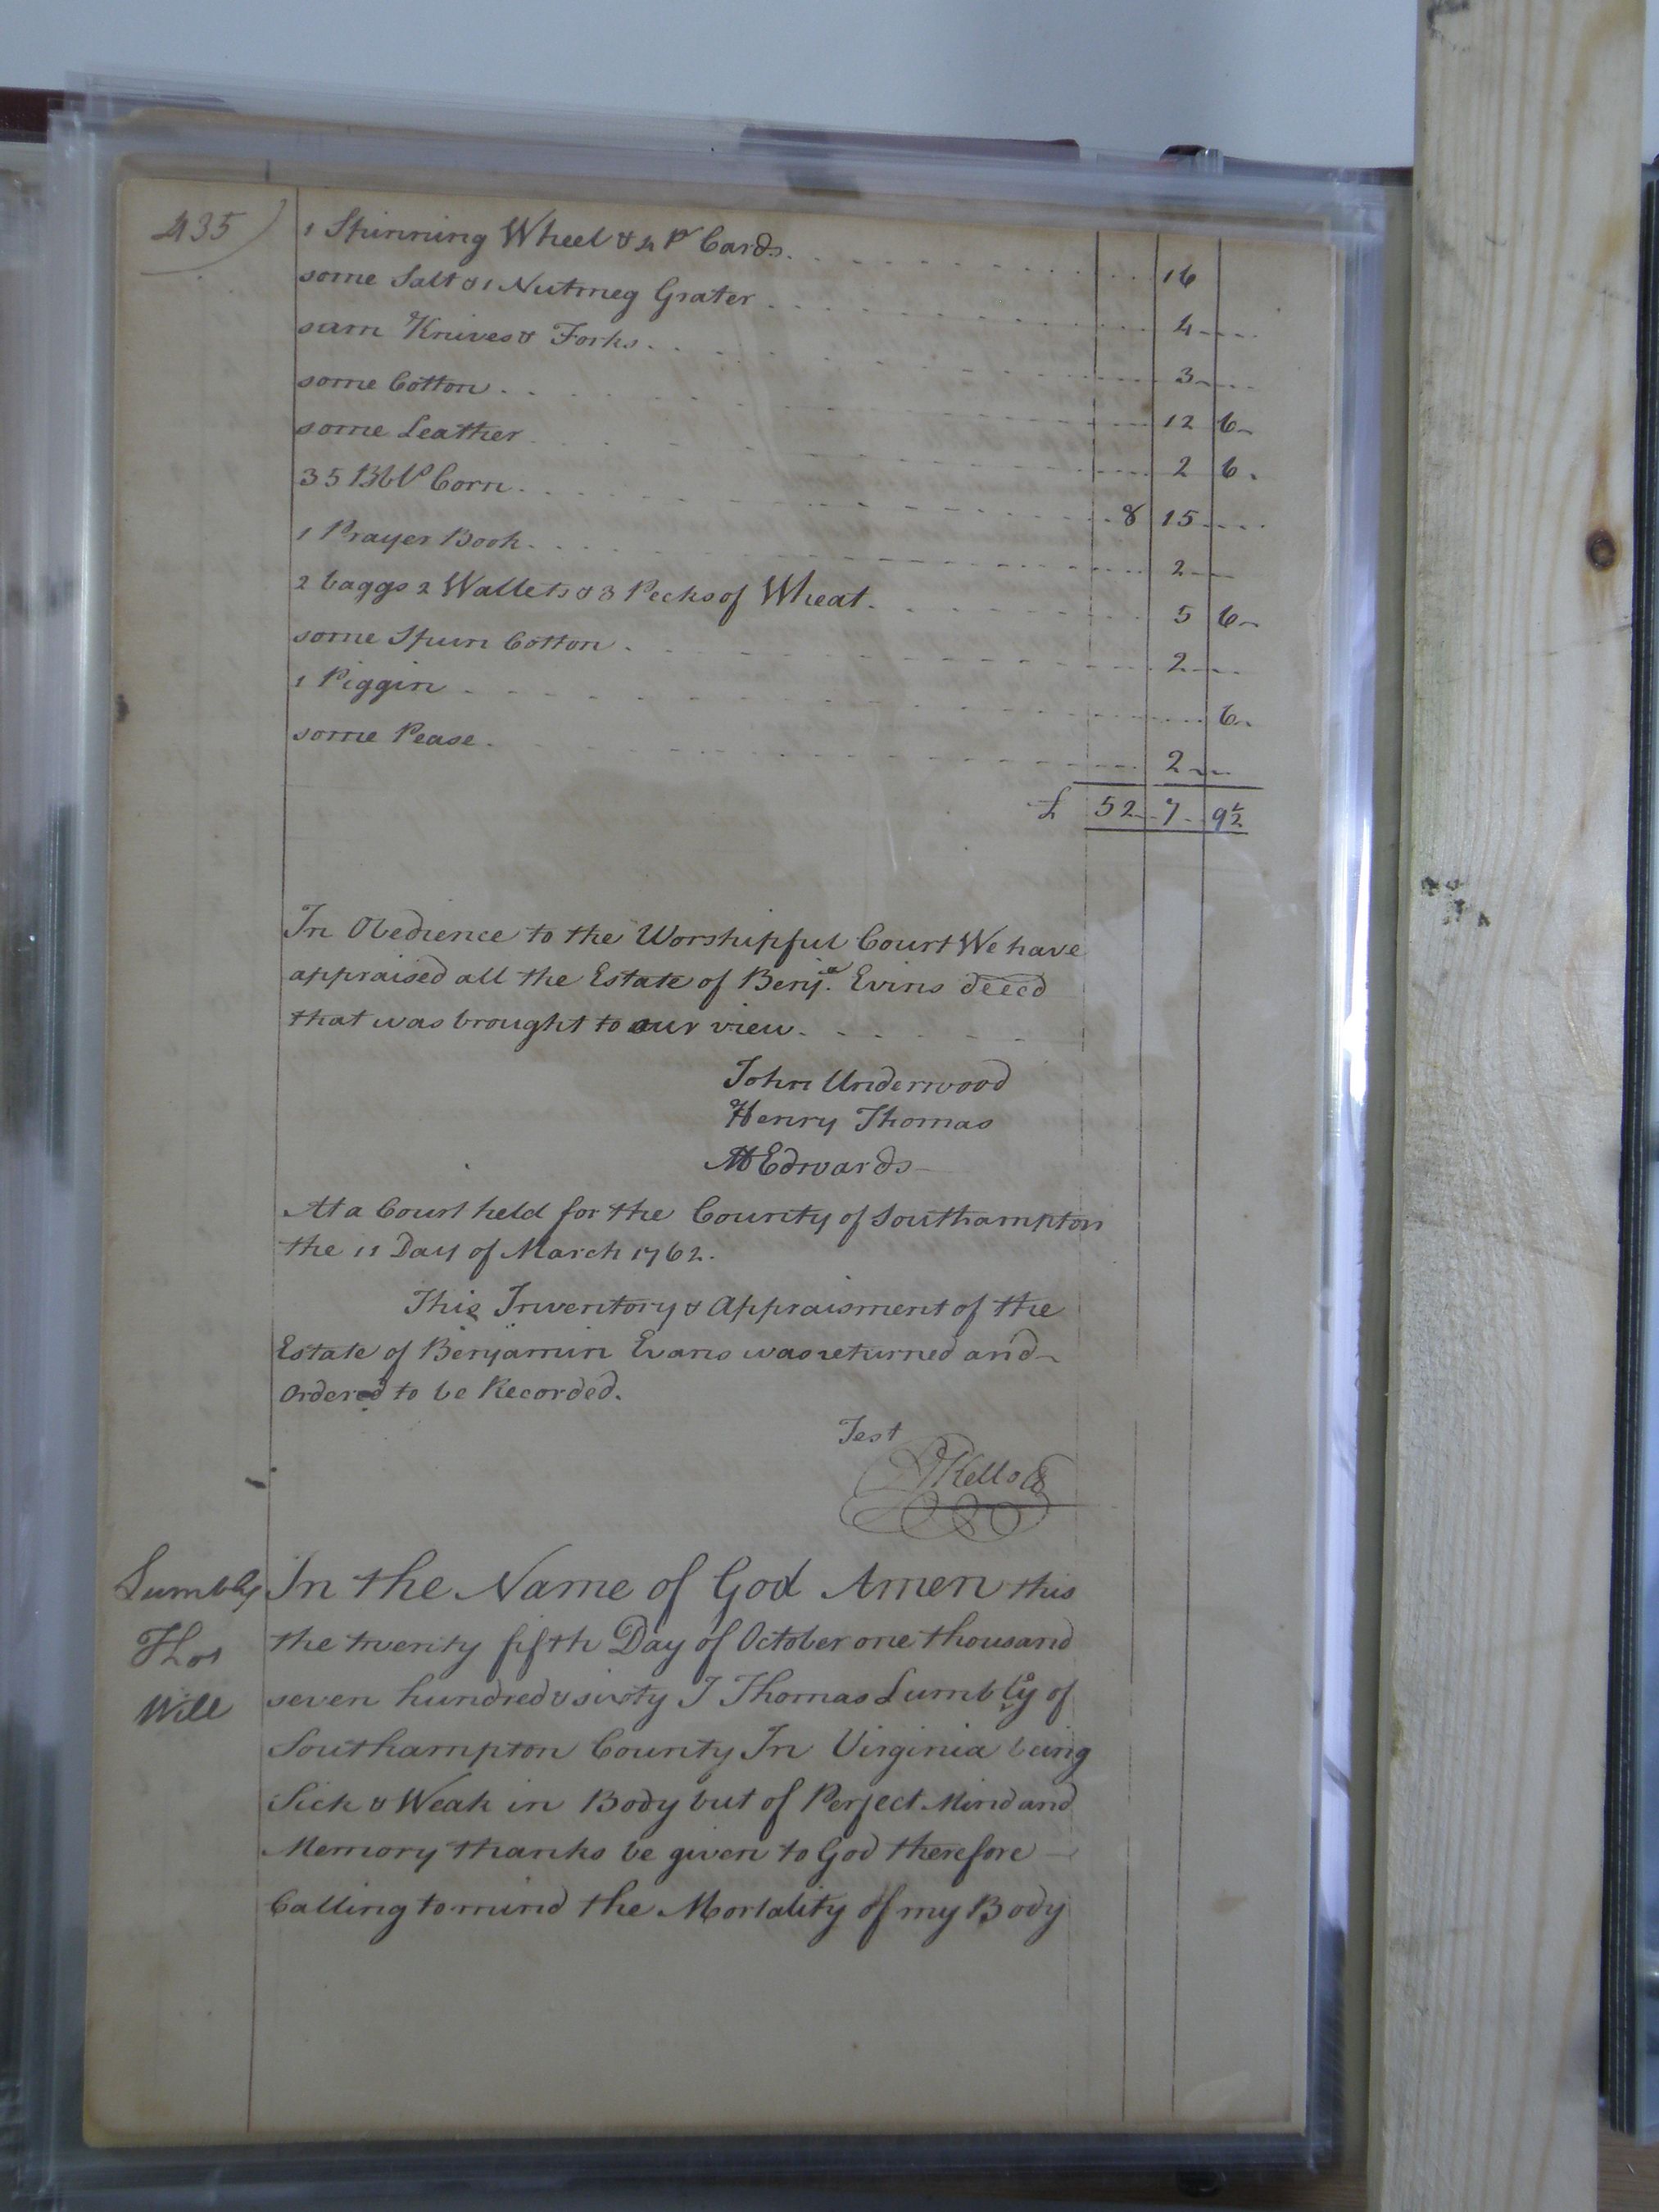 435)
1 Spinning Wheel & 4 Pr Cards. 16
some Salt & 1 Nutmeg Grater 4
sum Knives & Forks. 3
some Cotton. 12 6
some Leather 2 6
35 Bbls Corn. 8 15
1 Prayer Book. 2
2 baggs 2 Wallets & 3 Pecks of Wheat. 5 6
some Spun Cotton. 2
1 Piggin 6
some Pease. 2
£ 52 7 9½
In Obedience to the Worshipful Court We have
appraised all the Estate of Benja. Evins deced
that was brought to our view.
John Underwood
Henry Thomas
Edwards
At a Court held for the County of Southampton
the 11 Day of March 1762.
This Inventory & Appraisment of the
Estate of Benjamin Evans was returned and
Ordered to be Recorded.
Test
Kello
Lumbly In the Name of God Amen this
Thos the twenty fifth Day of October one thousand
Will seven hundred & sixty I Thomas Lumbly of
Southampton County In Virginia being
Sick & Weak in Body but of Perfect Mind and
Memory thanks be given to God therefore
Calling to mind the Mortality of my Body